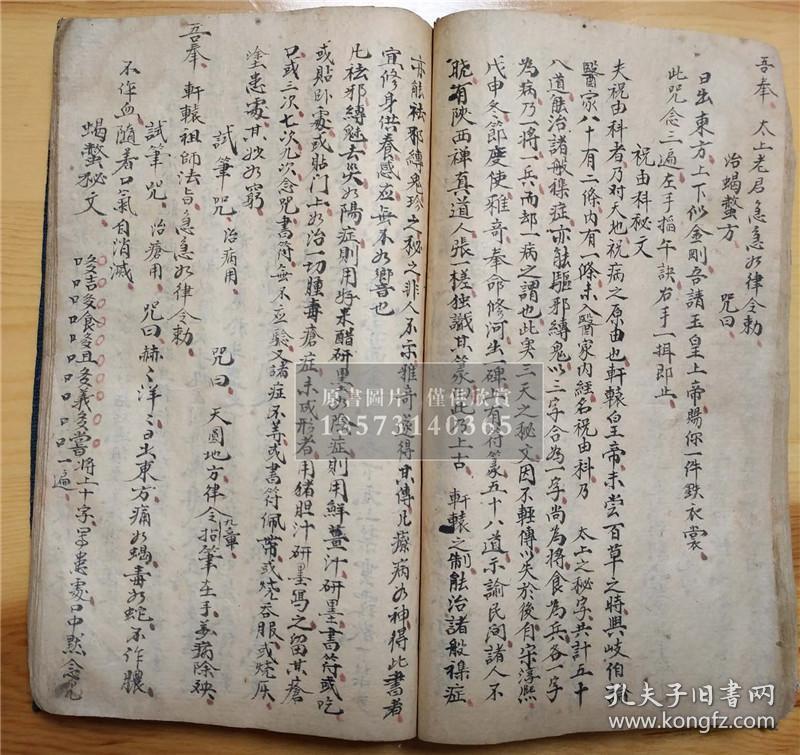 吾奉 太上老君急急如律令勅
治蝎螫方 咒曰
日出東方上下似金剛吾請玉皇上帝賜你一件鉄衣裳
此咒念三遍左手掐午訣右手一揖即止
祝由科秘文
夫祝由科者乃对天地祝病之原由也軒轅皇帝未尝百草之時與岐伯
醫家八十有二條内有一條未入醫家内經名祝由科乃 太上之秘字共計五十
八道能治諸般襍症亦能驅邪縛鬼以二字合為一字尚為将食為兵各一字
為病乃一将一兵而却一病之謂也此奥三天之秘文因不輕傳以失於後有宋淳熙
戊申冬節度使雅奇奉命修河出一碑有符篆五十八道示諭民间諸人不
晓有陝西禅真道人張一槎独識其篆此乃上古 軒轅之制能治諸般襍症
亦能祛邪縛鬼珍之秘之非人不示雅奇後得其傳凡療病如神得此書者
宜修身供養感应無不如響也
凡祛邪縛魅去災如陽症則用好米醋研墨如陰症則用鮮薑汁研墨書符或吃
或貼卧處或貼门上如治一切腫毒瘡症未成形者用猪胆汁研墨寫之留其瘡
口或三次七次九次念咒書符無不应驗又諸症不等或書符佩帶或燒吞服或燒灰
塗患處其妙如窮
試筆咒 治病用 咒曰 天圓地方律令九章指筆在手萬病除殃
吾奉 軒轅祖師法旨急急如律令勅
試筆咒 治瘡用 咒曰 赫〻洋〻日出東方痛如蝎毒如蛇不作膿
不作血随着口氣自消滅
蝎螫秘文 将上十字罩患處口中默念咒
一遍
原書圖片 僅供欣賞
13573140365
孔夫子旧書网
www.kongfz.com